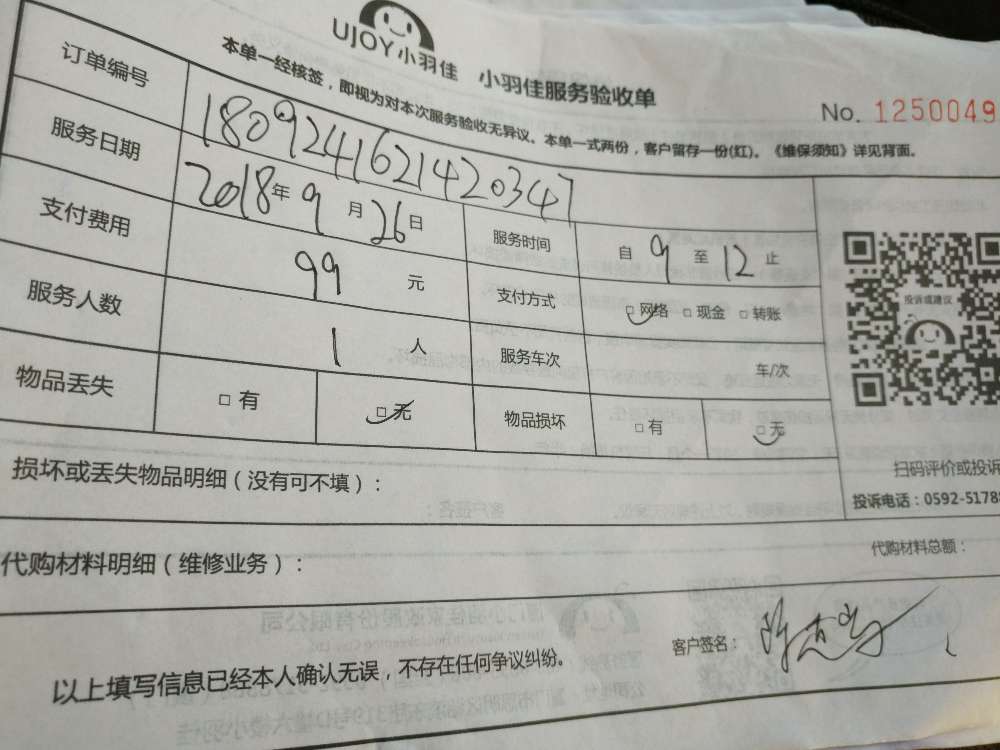 UJOY小羽佳 小羽佳服务验收单
No. 1250049
本单一经核签，即视为对本次服务验收无异议。本单一式两份，客户留存一份(红)。《维保须知》详见背面。
订单编号 1809241621420347
服务日期 2018年9月26日 服务时间 自9至12止
支付费用 99元 支付方式 □网络 □现金 □转账
服务人数 1人 服务车次 车/次
物品丢失 □有 □无 物品损坏 □有 □无
投诉或建议
扫码评价或投诉
投诉电话：0592-5178
损坏或丢失物品明细（没有可不填）：
代购材料明细（维修业务）： 代购材料总额：
以上填写信息已经本人确认无误，不存在任何争议纠纷。 客户签名：